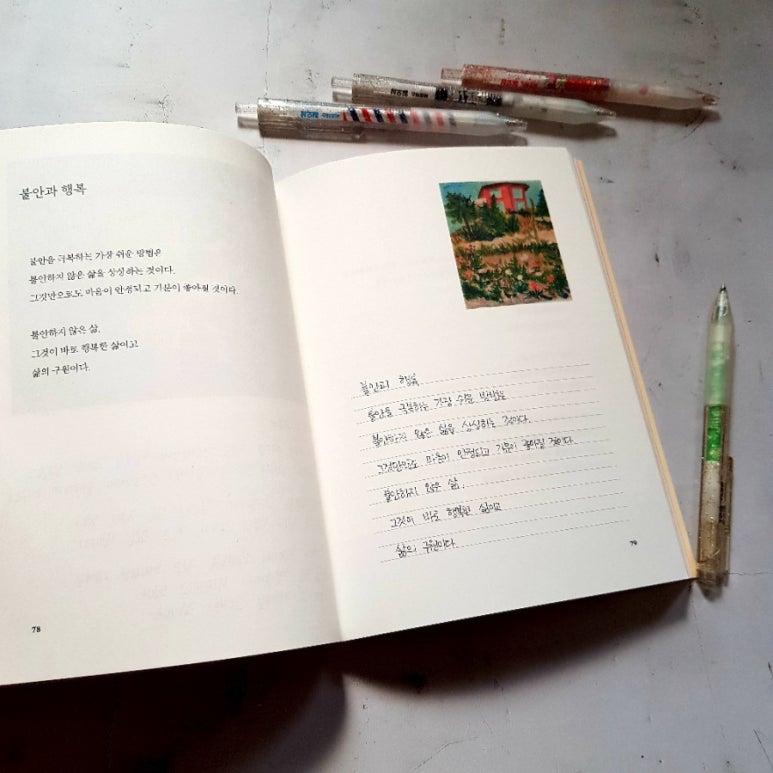 불안과 행복
불안을 극복하는 가장 쉬운 방법은
불안하지 않은 삶을 상상하는 것이다.
그것만으로도 마음이 안정되고 기분이 좋아질 것이다.
불안하지 않은 삶,
그것이 바로 행복한 삶이고
삶의 구원이다.
78
불안과 행복
불안을 극복하는 가장 쉬운 방법은
불안하지 않은 삶을 상상하는 것이다.
그것만으로도 마음이 안정되고 기분이 좋아질 것이다.
불안하지 않은 삶,
그것이 바로 행복한 삶이고
삶의 구원이다.
79